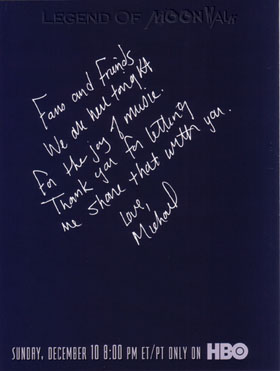 LEGEND OF MOONWALK
Fans and Friends
We are here tonight
For the joy of music.
Thank you for letting
me share that with you.
Love,
Michael
SUNDAY, DECEMBER 10 8:00 PM ET/PT ONLY ON HBO